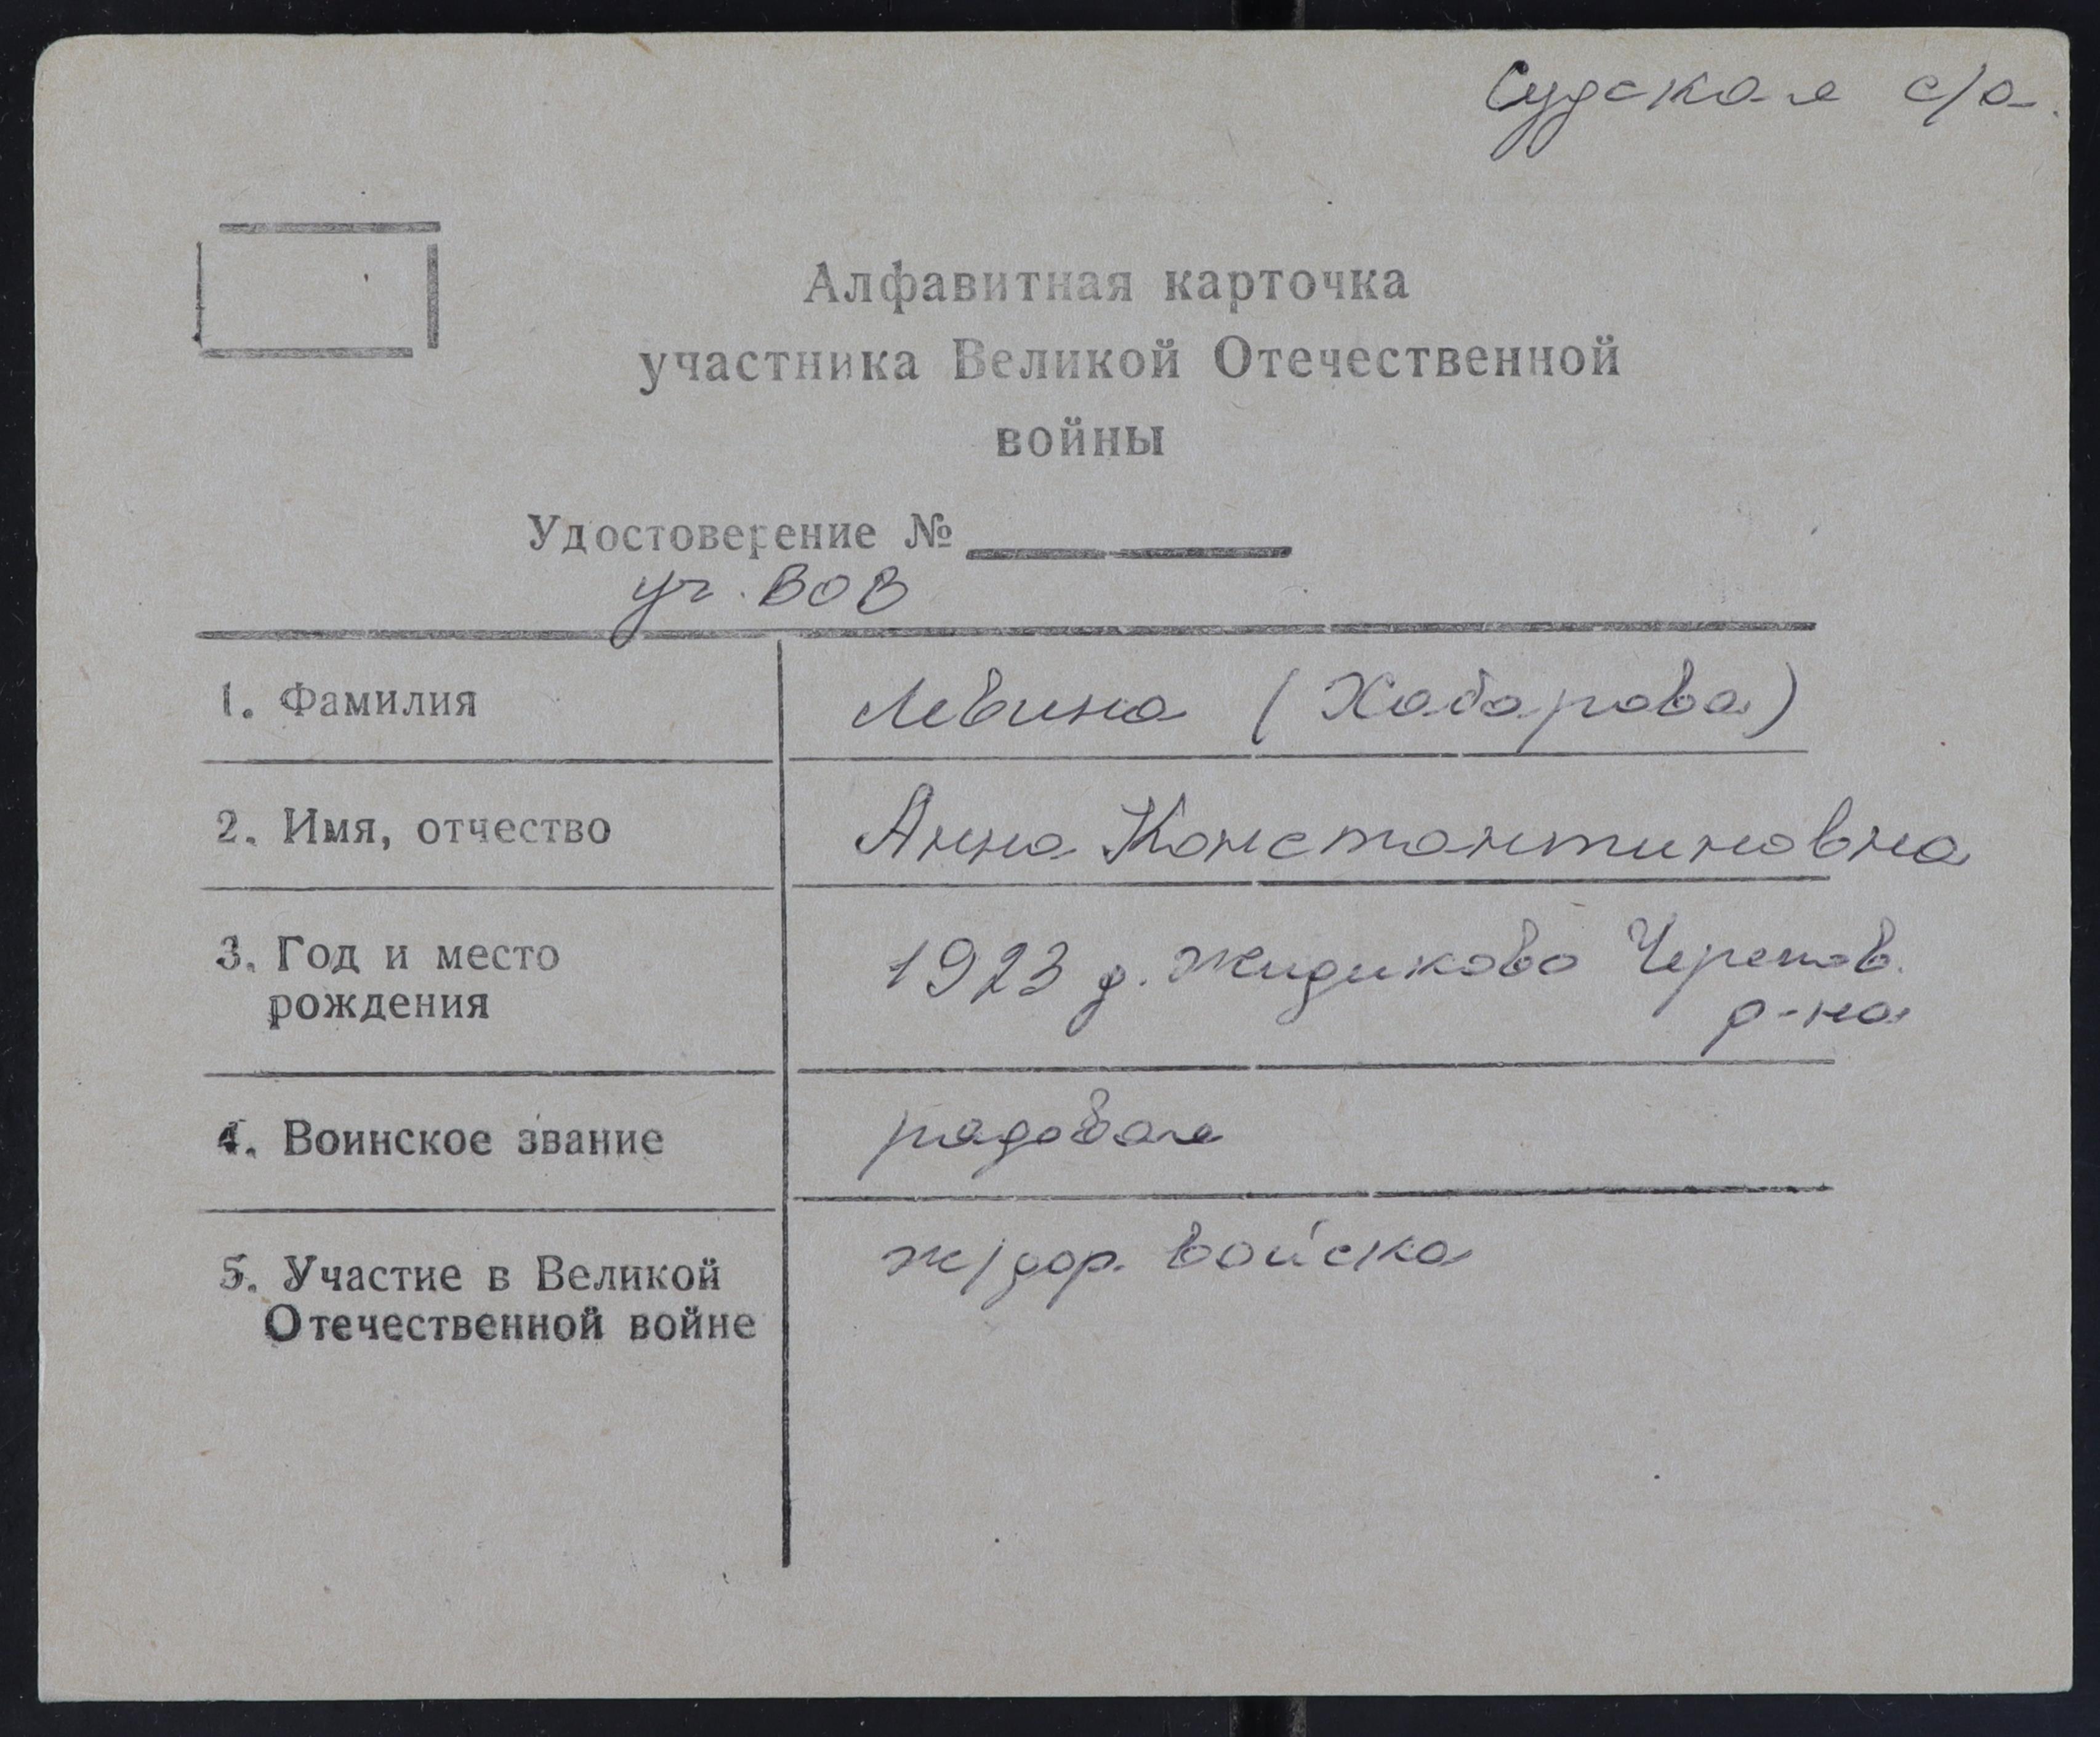 Судская с/а.
Алфавитная карточка
участника Великой Отечественной
войны
Удостоверение №
уч. ВОВ
1. Фамилия
Левина (Хабарова)
2. Имя, отчество
Анна Константиновна
3. Год и место
рождения
1923 д. Жидиково Черепов.
р-на
4. Воинское звание
рядовая
5. Участие в Великой
Отечественной войне
ж/дор. войска